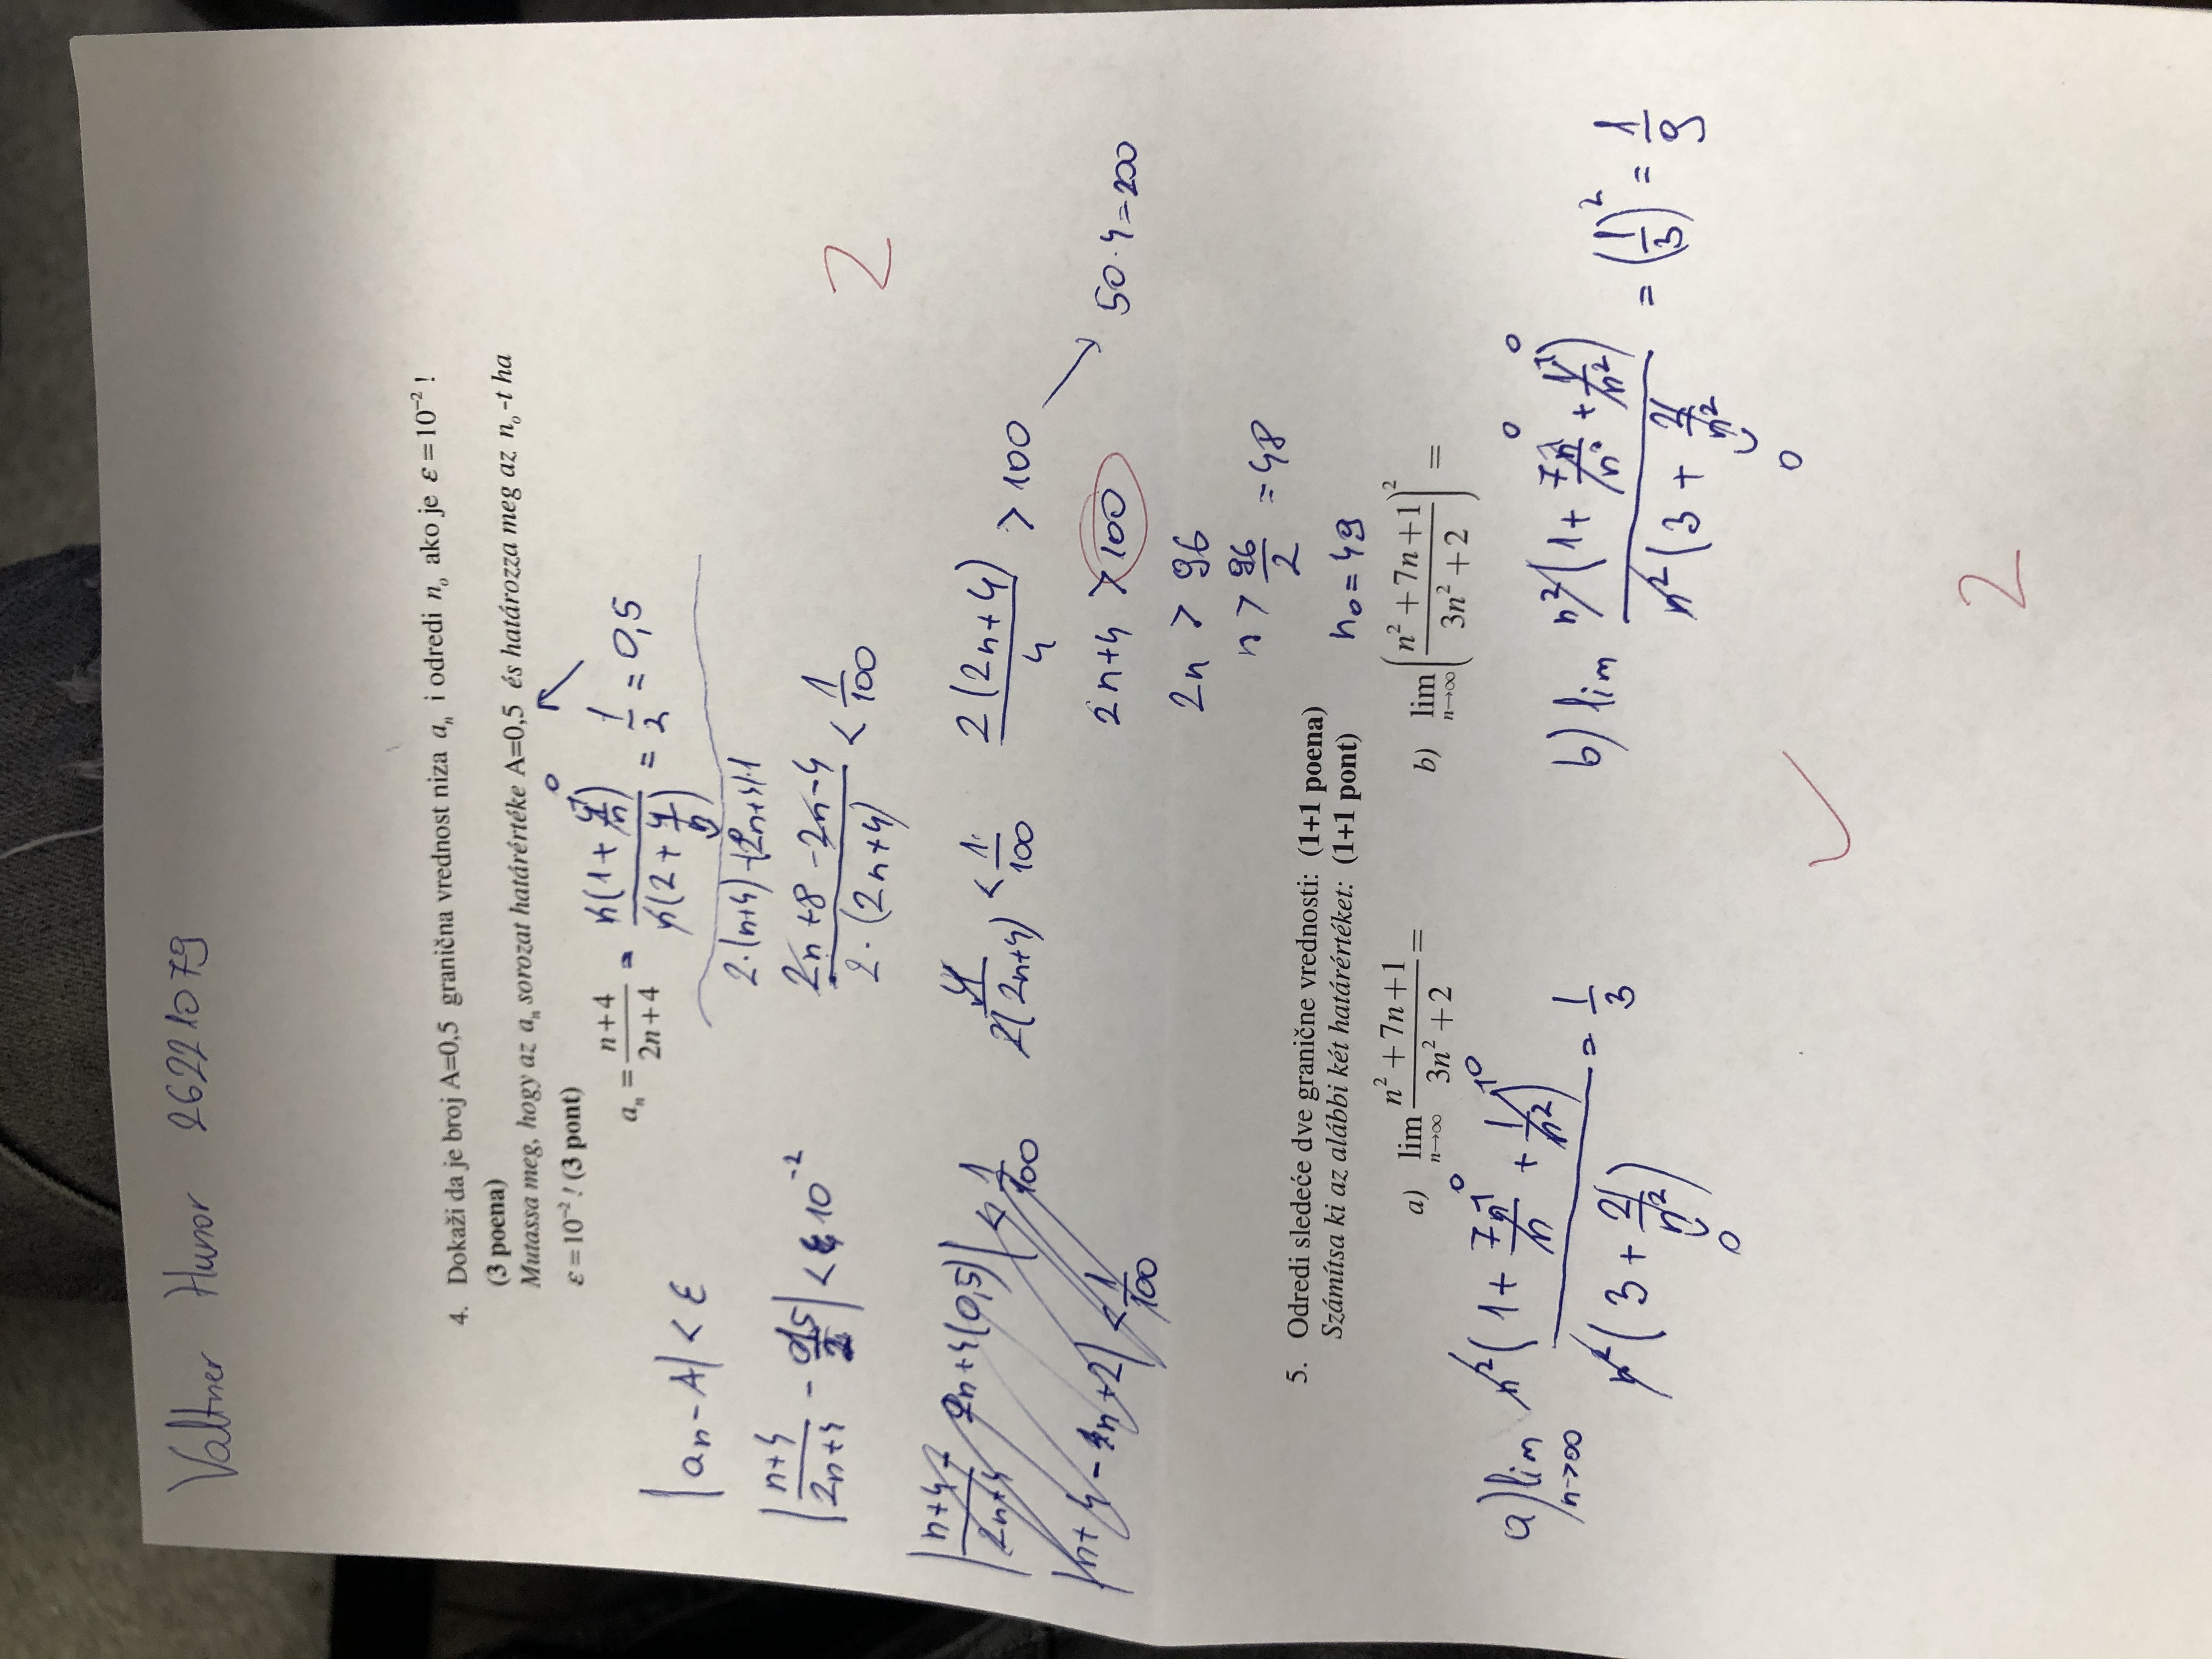 Valtner Hunor 26221079
4. Dokaži da je broj A=0,5 granična vrednost niza aₙ i odredi n₀ ako je ε=10⁻² !
(3 poena)
Mutassa meg, hogy az aₙ sorozat határértéke A=0,5 és határozza meg az n₀-t ha
ε=10⁻² ! (3 pont)
aₙ = (n+4)/(2n+4) = n(1+4/n)/n(2+4/n) = 1/2 = 0,5
0
0
|aₙ - A| < ε
2·(n+4)-(2n+4)·1
|(n+4)/(2n+4) - 1/2| < 10⁻²
(2n+8-2n-4)/(2·(2n+4)) < 1/100
2
4/(2(2n+4)) < 1/100
2(2n+4)/4 > 100
50·4=200
2n+4 > 100
2n > 96
n > 96/2 = 48
n₀=49
5. Odredi sledeće dve granične vrednosti: (1+1 poena)
Számítsa ki az alábbi két határértéket: (1+1 pont)
a) lim n→∞ (n²+7n+1)/(3n²+2) =
b) lim n→∞ ((n²+7n+1)/(3n²+2))² =
a) lim n→∞ n²(1+7n/n+1/n²)/n²(3+2/n²) = 1/3
0 0
0
b) lim n²(1+7n/n²+1/n²)/n²(3+2/n²) = (1/3)² = 1/9
0 0
0
2